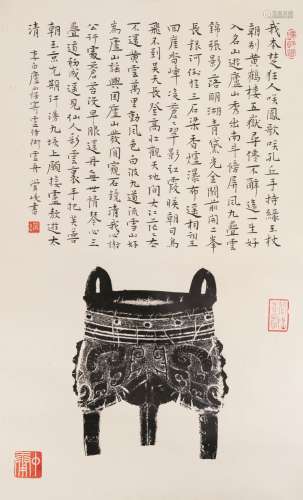 我本楚狂人鳳歌咲孔丘手持綠玉杖
朝別黃鶴樓五嶽尋僊不辭遠一生好
入名山遊廬山秀出南斗傍屏風九疊雲
錦張影落明湖青黛光金闕前開二峯
長銀河倒挂三石梁香爐瀑布遙相望
迴崖沓嶂凌蒼蒼翠影紅霞暎朝日鳥
飛不到吳天長登高壯觀天地間大江茫茫去
不還黃雲萬里動風色白波九道流雪山好
為廬山謠興因廬山發閒窺石鏡清我心謝
公行處蒼苔沒早服還丹無世情琴心三
疊道初成遙見仙人彩雲裏手把芙蓉
朝玉京先期汗漫九垓上願接盧敖遊太
清 李白廬山謠寄盧侍御虛舟 書